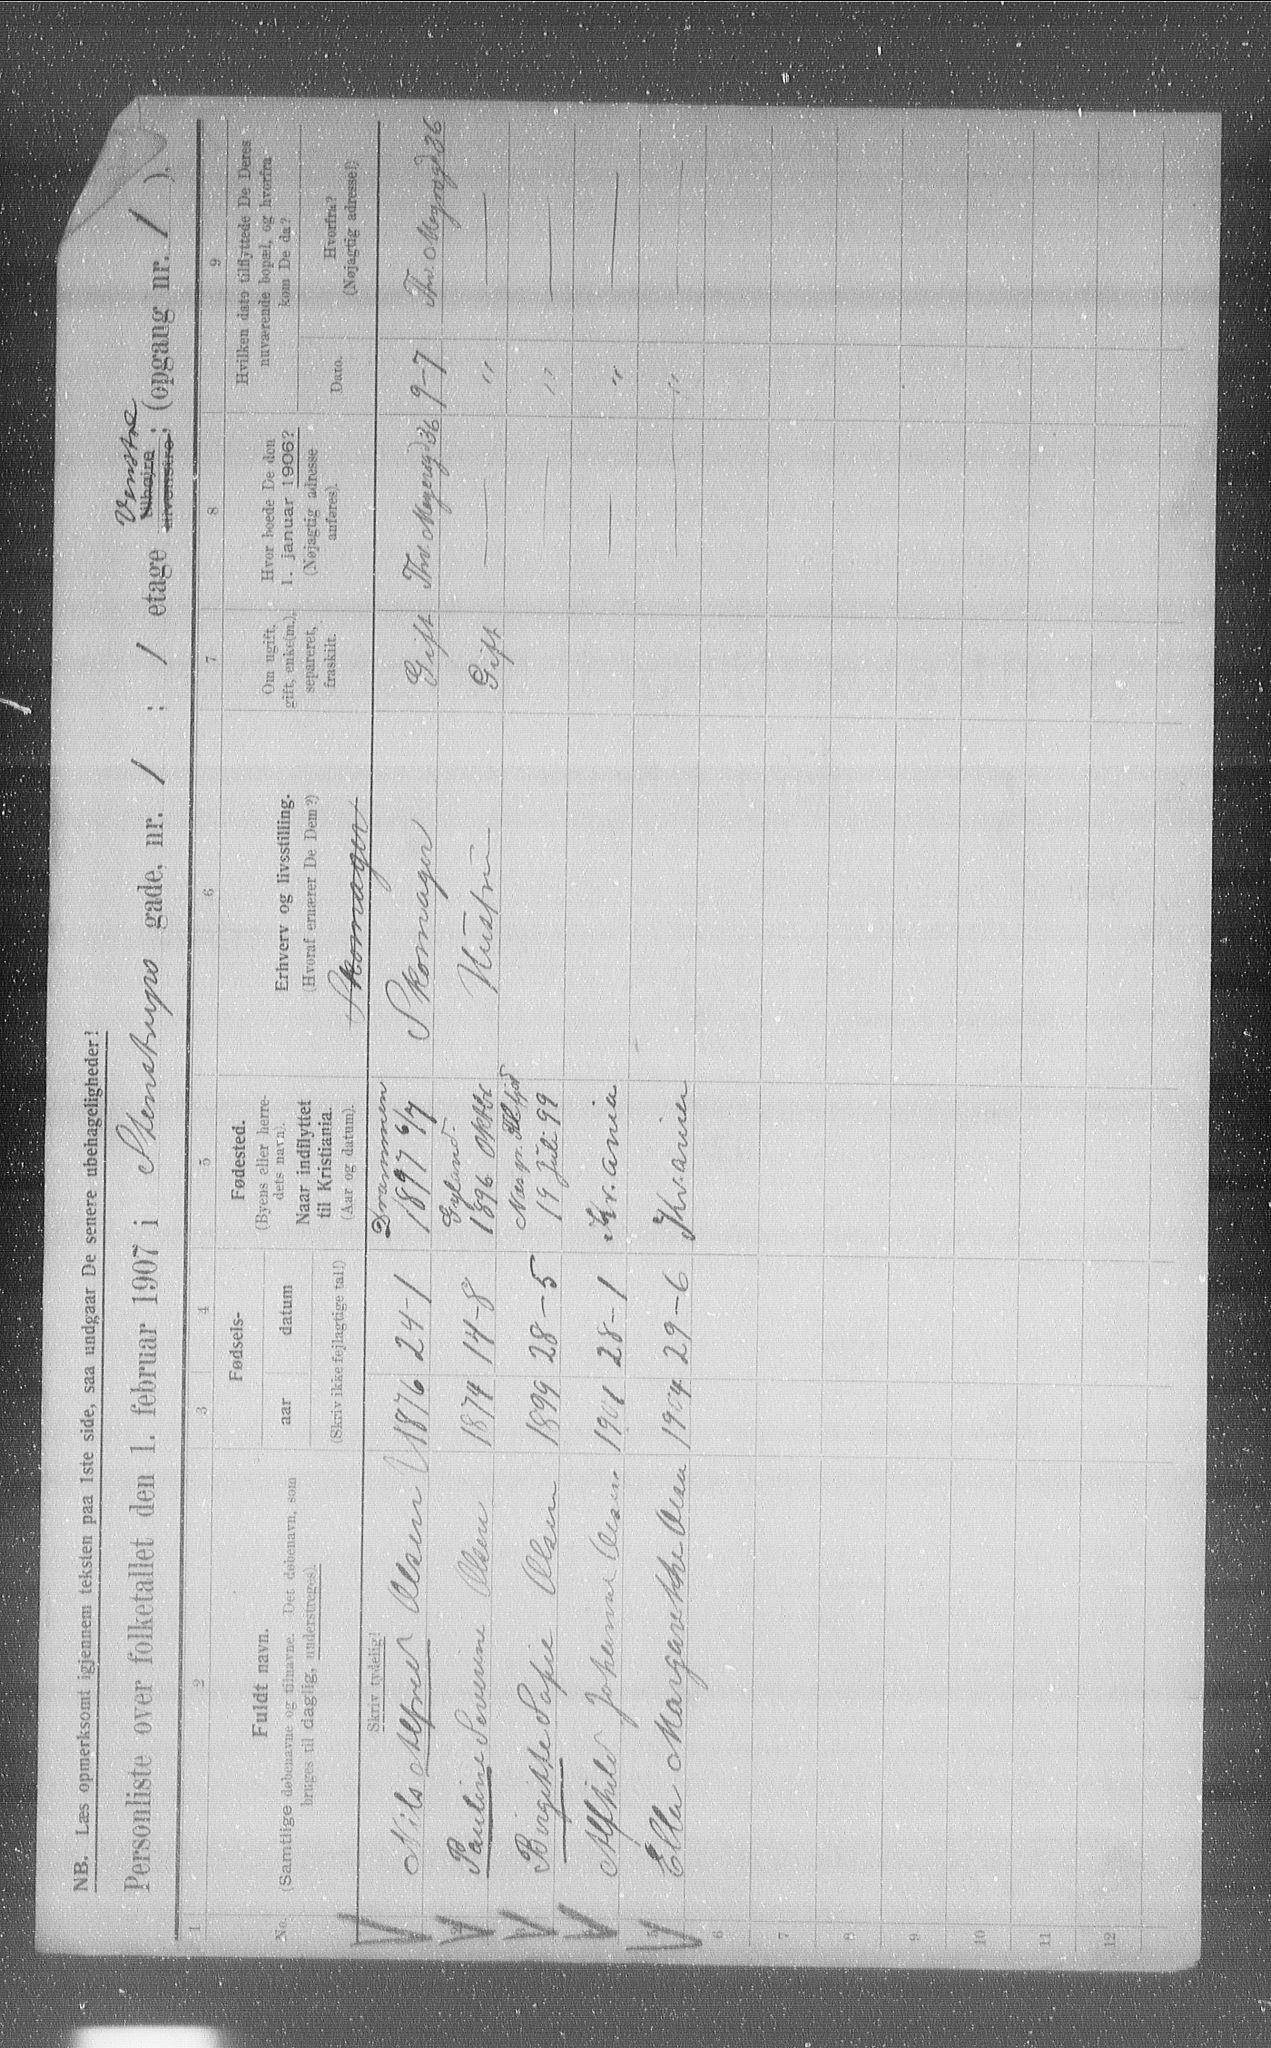 NB. Læs opmerksomt igjennem teksten paa 1ste side, saa undgaar De senere ubehageligheder!
Personliste over folketallet den 1. februar 1907 i Stenstrups gade, nr. 1 ; 1 etage tilhøire tilvenstre Venstre ; (opgang nr. 1 ).
1 2 3 4 5 6 7 8 9
No. Fuldt navn.
(Samtlige døbenavne og tilnavne. Det døbenavn, som
bruges til daglig, understreges)
Skriv tydelig!
Fødsels-
aar datum
(Skriv ikke fejlagtige tal!)
Fødested.
(Byens eller herre-
dets navn).
Naar indflyttet
til Kristiania.
(Aar og datum).
Erhverv og livsstilling.
(Hvoraf ernærer De Dem?)
Skomager
Om ugift,
gift, enke(m.),
separeret,
fraskilt.
Hvor boede De den
1. januar 1906?
(Nøjagtig adresse
anføres).
Hvilken dato tilflyttede De Deres
nuværende bopæl, og hvorfra
kom De da?
Dato.
Hvorfra?
(Nøjagtig adresse!)
Nils Alfred Olsen 1876 24-1 Drammen 1897 6/7 Skomager Gift Thv. Meyersgd 36 9-7 Thv. Meyersgd 36
2 Pauline Severine Olsen 1874 14-8 Gyland 1896 Oktbr Hustru Gift — " —
3 Birgitte Sofie Olsen 1899 28-5 Næs pr. 19 Juli 99 — " —
Alfhild Johanne Olsen 1901 28-1 Kr.ania — " —
5 Ella Margarethe Olsen 1904 29-6 Kr.ania — " —
6
7
8
9
10
11
12